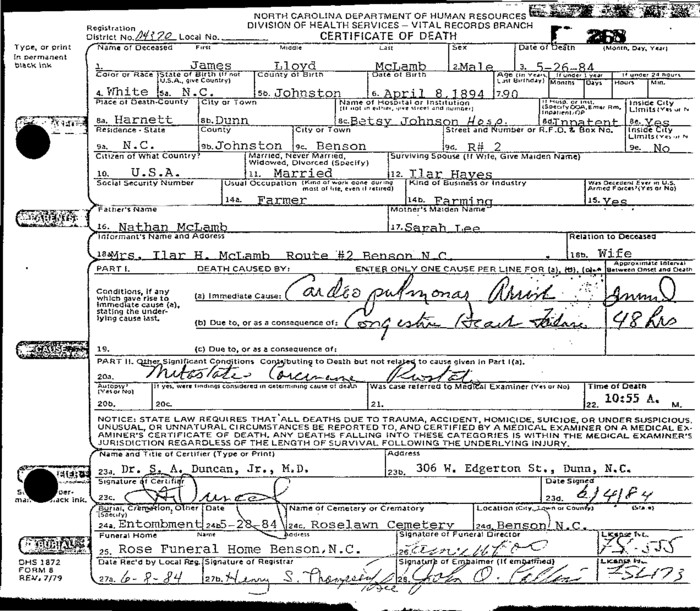 NORTH CAROLINA DEPARTMENT OF HUMAN RESOURCES
DIVISION OF HEALTH SERVICES - VITAL RECORDS BRANCH
Registration
District No. Local No.
CERTIFICATE OF DEATH
268
Type, or print
in permanent
black ink
Name of Deceased First Middle Last Sex Date of Death (Month, Day, Year)
1. James Lloyd McLamb 2. Male 3. 5-26-84
Color or Race State of Birth (If not U.S.A., give Country) County of Birth Date of Birth Age (In Years, Last Birthday) If under 1 year If under 24 hours
Months Days Hours Min.
4. White 5a. N.C. 5b. Johnston 6. April 8,1894 7. 90
Place of Death-County City or Town Name of Hospital or Institution (If not in either, give street and number) If Hosp. or Inst. (Specify DOA, Emer Rm, Inpatient, OP Inside City Limits
8a. Harnett 8b. Dunn 8c. Betsy Johnson Hosp. 8d. Inpatent 8e. Yes
Residence - State County City or Town Street and Number or R.F.D. & Box No. Inside City Limits
9a. N.C. 9b. Johnston 9c. Benson 9d. R# 2 9e. No
Citizen of What Country? Married, Never Married, Widowed, Divorced (Specify) Surviving Spouse (If Wife, Give Maiden Name)
10. U.S.A. 11. Married 12. Ilar Hayes
Social Security Number Usual Occupation (Kind of work done during most of life, even if retired) Kind of Business or Industry Was Decedent Ever in U.S. Armed Forces? (Yes or No)
14a. Farmer 14b. Farming 15. Yes
Father's Name Mother's Maiden Name
16. Nathan McLamb 17. Sarah Lee
Informant's Name and Address Relation to Deceased
18a Mrs. Ilar H. McLamb Route #2 Benson N.C. 18b. Wife
PART I. DEATH CAUSED BY: ENTER ONLY ONE CAUSE PER LINE FOR (a), (b), Approximate Interval Between Onset and Death
Conditions, if any
which gave rise to
immediate cause (a),
stating the under-
lying cause last.
(a) Immediate Cause: Cardio pulmonary Arrest
(b) Due to, or as a consequence of: Congestive Heart Failure 48 hrs
19. (c) Due to, or as a consequence of:
PART II. Other Significant Conditions Contributing to Death but not related to cause given in Part I(a).
20a. Carcinoma Prostate
Autopsy? (Yes or No) If yes, were findings considered in determining cause of death Was case referred to Medical Examiner (Yes or No) Time of Death
20b. 20c. 21. 22. 10:55 A. M.
NOTICE: STATE LAW REQUIRES THAT ALL DEATHS DUE TO TRAUMA, ACCIDENT, HOMICIDE, SUICIDE, OR UNDER SUSPICIOUS,
UNUSUAL, OR UNNATURAL CIRCUMSTANCES BE REPORTED TO, AND CERTIFIED BY A MEDICAL EXAMINER ON A MEDICAL EX-
AMINER'S CERTIFICATE OF DEATH. ANY DEATHS FALLING INTO THESE CATEGORIES IS WITHIN THE MEDICAL EXAMINER'S
JURISDICTION REGARDLESS OF THE LENGTH OF SURVIVAL FOLLOWING THE UNDERLYING INJURY.
Name and Title of Certifier (Type or Print) Address
23a. Dr. S. A. Duncan, Jr., M.D. 23b. 306 W. Edgerton St., Dunn, N.C.
Signature of Certifier Date Signed
23c. 23d. 6/4/84
Burial, Cremation, Other (Specify) Date Name of Cemetery or Crematory Location (City, Town or County) (State)
24a. Entombment 24b 5-28-84 24c. Roselawn Cemetery 24d. Benson, N.C.
Funeral Home Name Address Signature of Funeral Director License No.
25. Rose Funeral Home Benson,N.C. 26.
Date Rec'd by Local Reg. Signature of Registrar Signature of Embalmer (If embalmed) License No.
27a. 6-8-84 27b. Henry S. Thompson 28.
DHS 1872
FORM 8
REV. 7/79